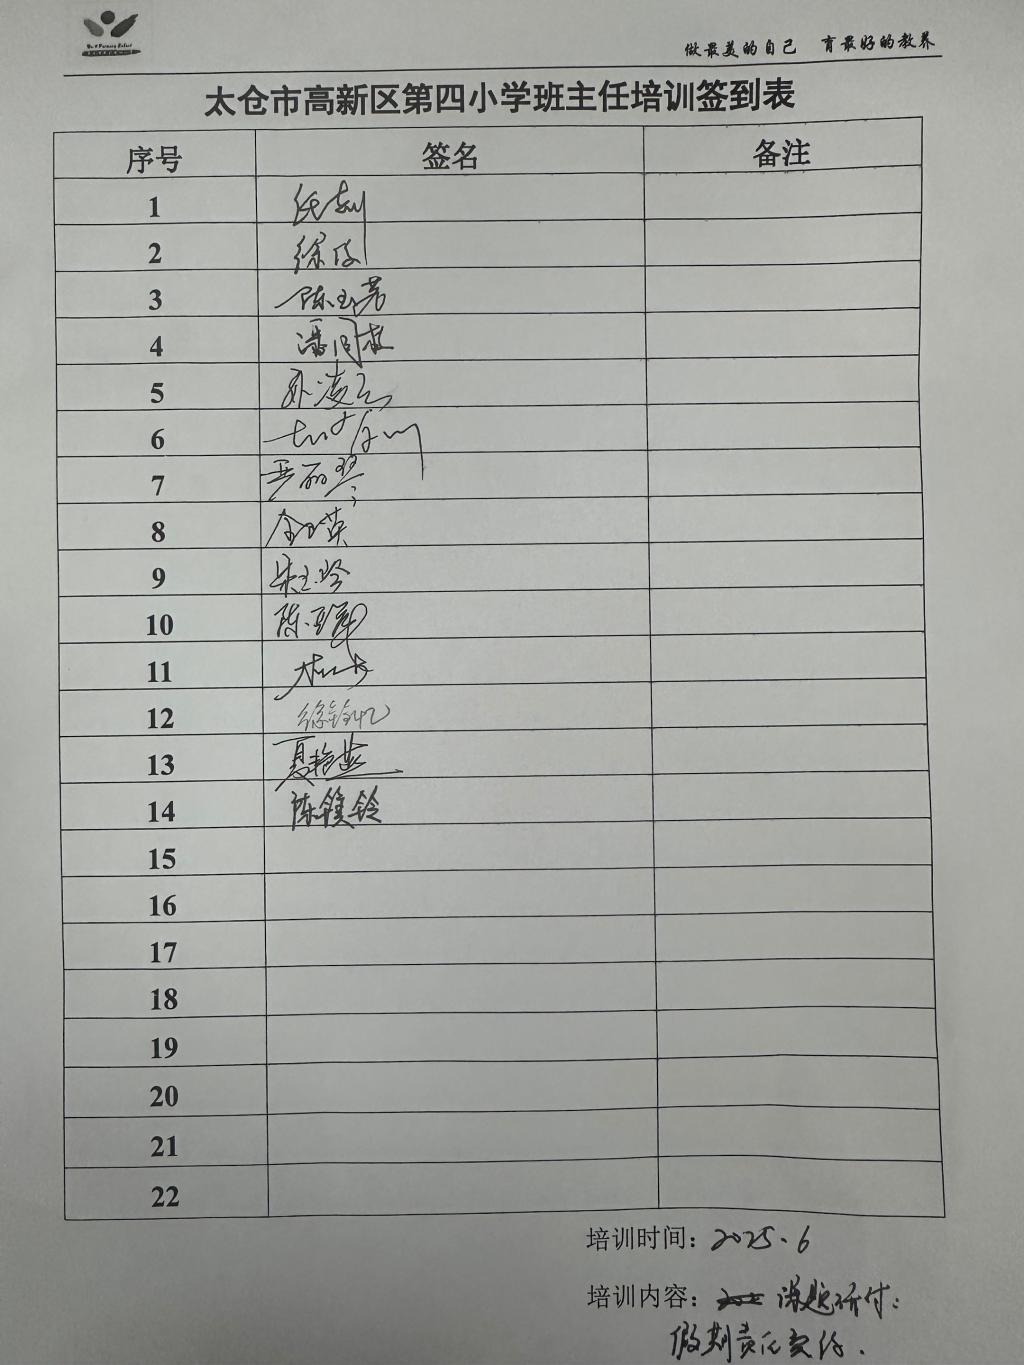 做最美的自己 育最好的教养
太仓市高新区第四小学班主任培训签到表
序号 签名 备注
1
2 徐
3 陈玉芳
4 潘
5 孙凌云
6
7 严丽
8 金玉英
9 朱玉玲
10 陈亚军
11
12 徐
13 夏艳燕
14 陈铃
15
16
17
18
19
20
21
22
培训时间：2025.6
培训内容： 课题研讨：
假期责任